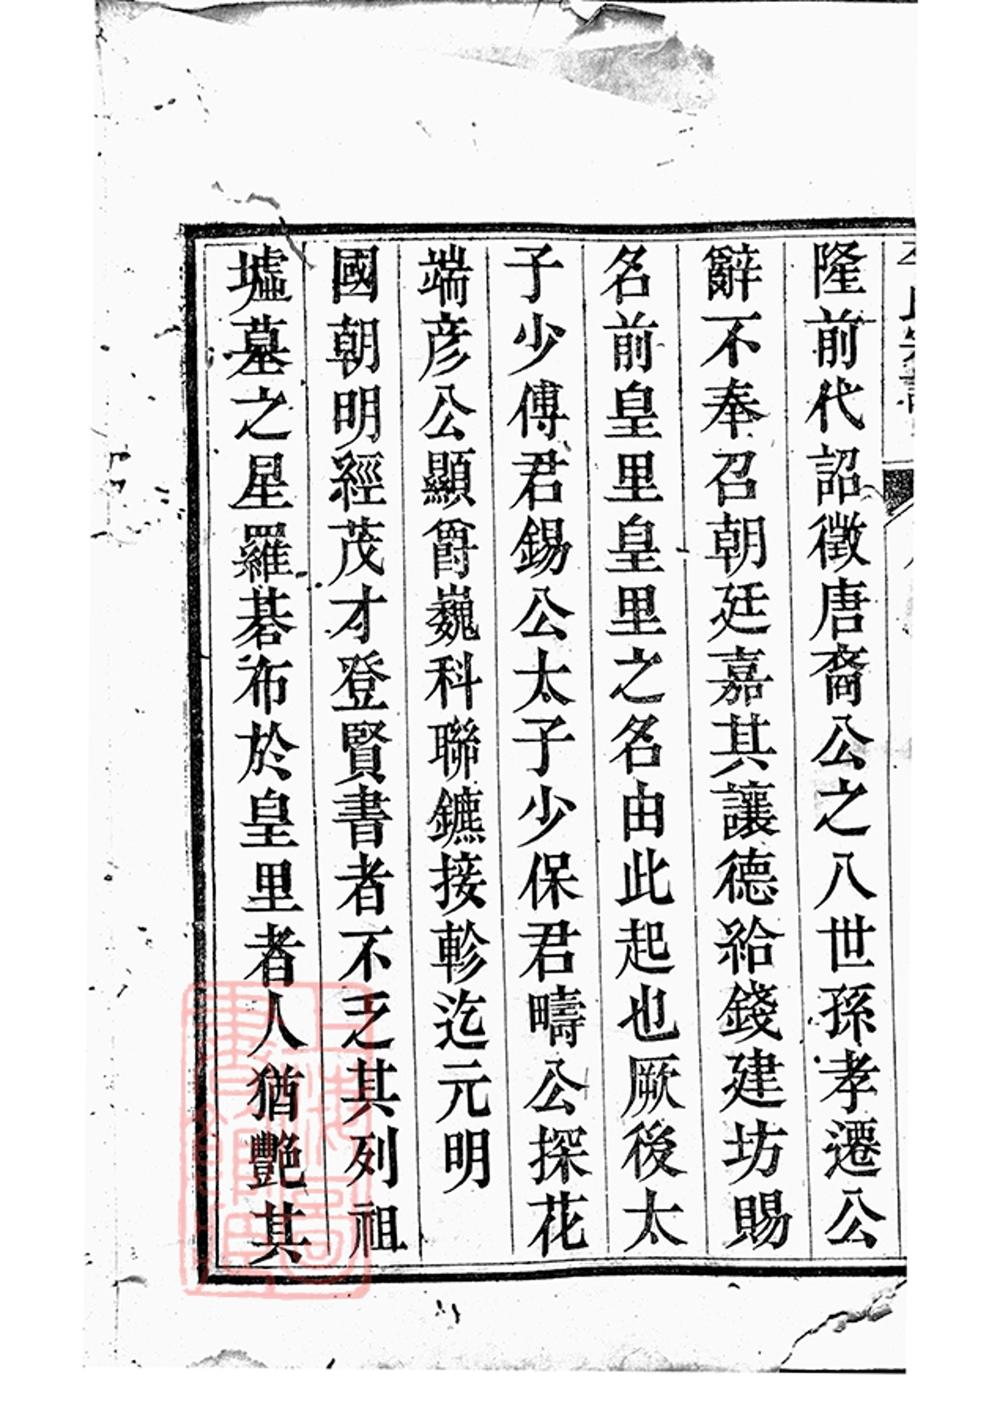 隆前代詔徵唐裔公之八世孫孝遷公
辭不奉召朝廷嘉其讓德給錢建坊賜
名前皇里皇里之名由此起也厥後太
子少傅君錫公太子少保君疇公探花
端彦公顯爵巍科聯鑣接軫迄元明
國朝明經茂才登賢書者不乏其列祖
墟墓之星羅碁布於皇里者人猶艷其